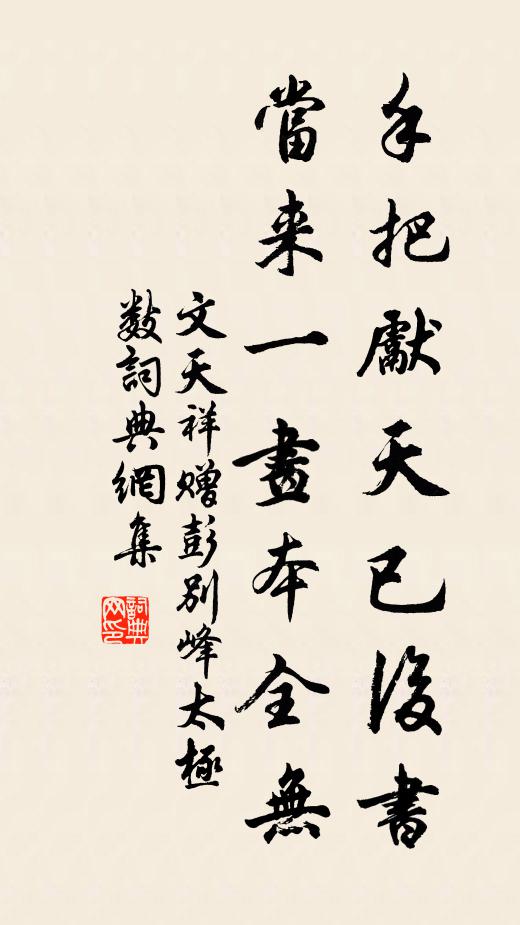 手把獻天已後書
當来一畫本全無
文天祥贈彭別峰太極
數詞典網集
詞典
网印